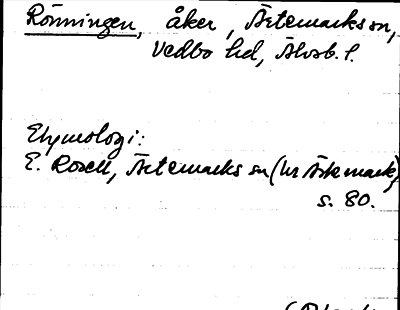 Rönningen, åker, Ärtemarks sn,
Vedbo hd, Älvsb. l.
Etymologi:
E. Rosell, Ärtemarks sn (hr Ärtemark)
s. 80.